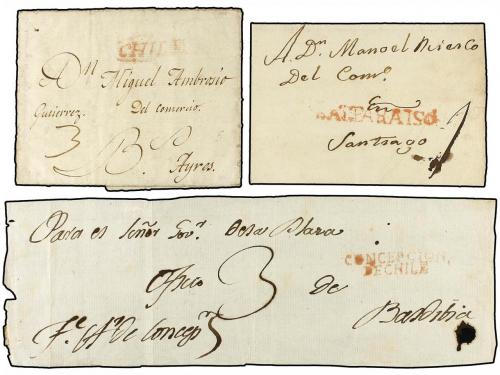 CHILE
A Dn Miguel Ambrosio
Gutierrez. Del Comercio.
3 Bs
Ayres.
A Dn. Manoel Riesco
Del Como.
En
VALPARAISO
Santiago
Para el Señor Govr. De la Plaza
CONCEPCION,
DE CHILE
3 de
Baldibia